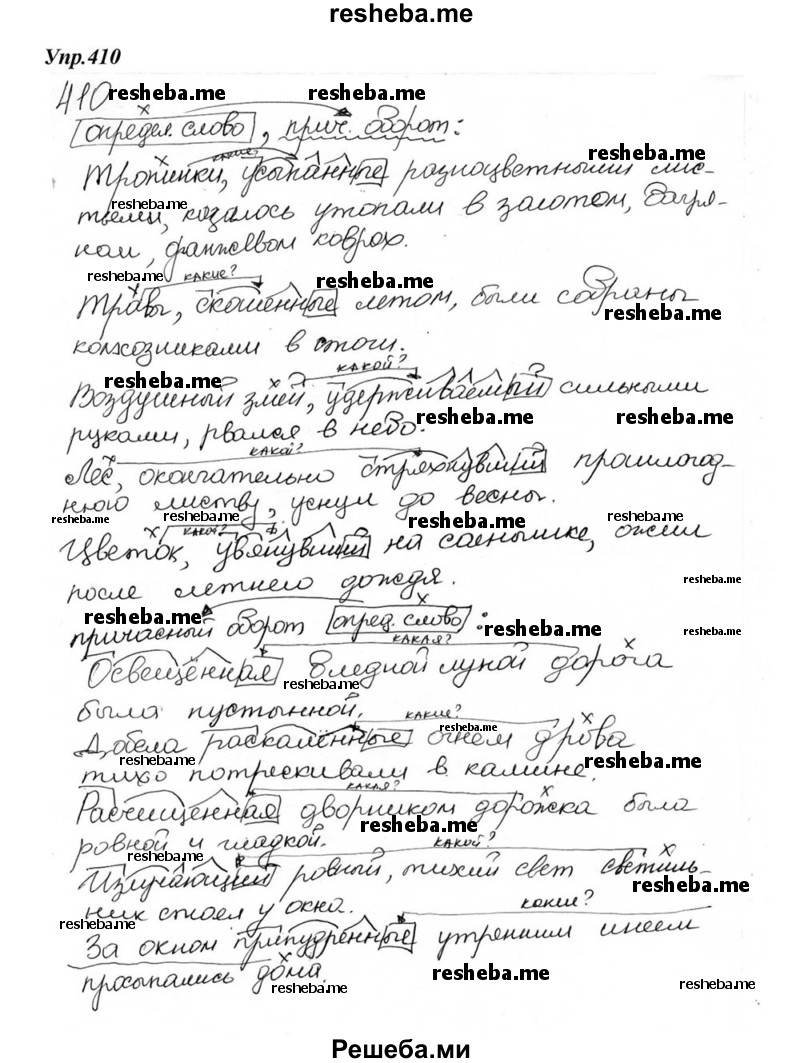 resheba.me
Упр.410
410 resheba.me resheba.me
определ. слово, прич. оборот:
resheba.me
какие?
Тропинки, усыпанные разноцветными лис-
resheba.me
тьями, казалось утопали в золотом, багря-
ном, коврах.
resheba.me какие? resheba.me
Травы, скошенные летом, были собраны
resheba.me
колхозниками в стоги.
resheba.me какой?
Воздушный змей, удерживаемый сильными
resheba.me resheba.me
руками, рвался в небо.
какой?
Лес, окончательно стряхнувший прошлогод-
нюю листву, уснул до весны.
resheba.me resheba.me resheba.me resheba.me
какой?
Цветок, увянувший на солнышке, ожил
после летнего дождя.
resheba.me
resheba.me
причасный оборот опред. слово:
resheba.me resheba.me
какая?
Освещённая бледной луной дорога
resheba.me
была пустынной.
какие?
resheba.me
Добела раскалённые огнем дрова
resheba.me resheba.me
тихо потрескивали в камине.
какая?
Расчищенная дворником дорожка была
resheba.me
ровной и гладкой.
resheba.me какой?
Излучающий ровный, тихий свет светиль-
resheba.me
ник стоял у окна.
какие?
resheba.me
За окном припудренные утренним инеем
просыпались дома.
resheba.me resheba.me resheba.me
Решеба.ми